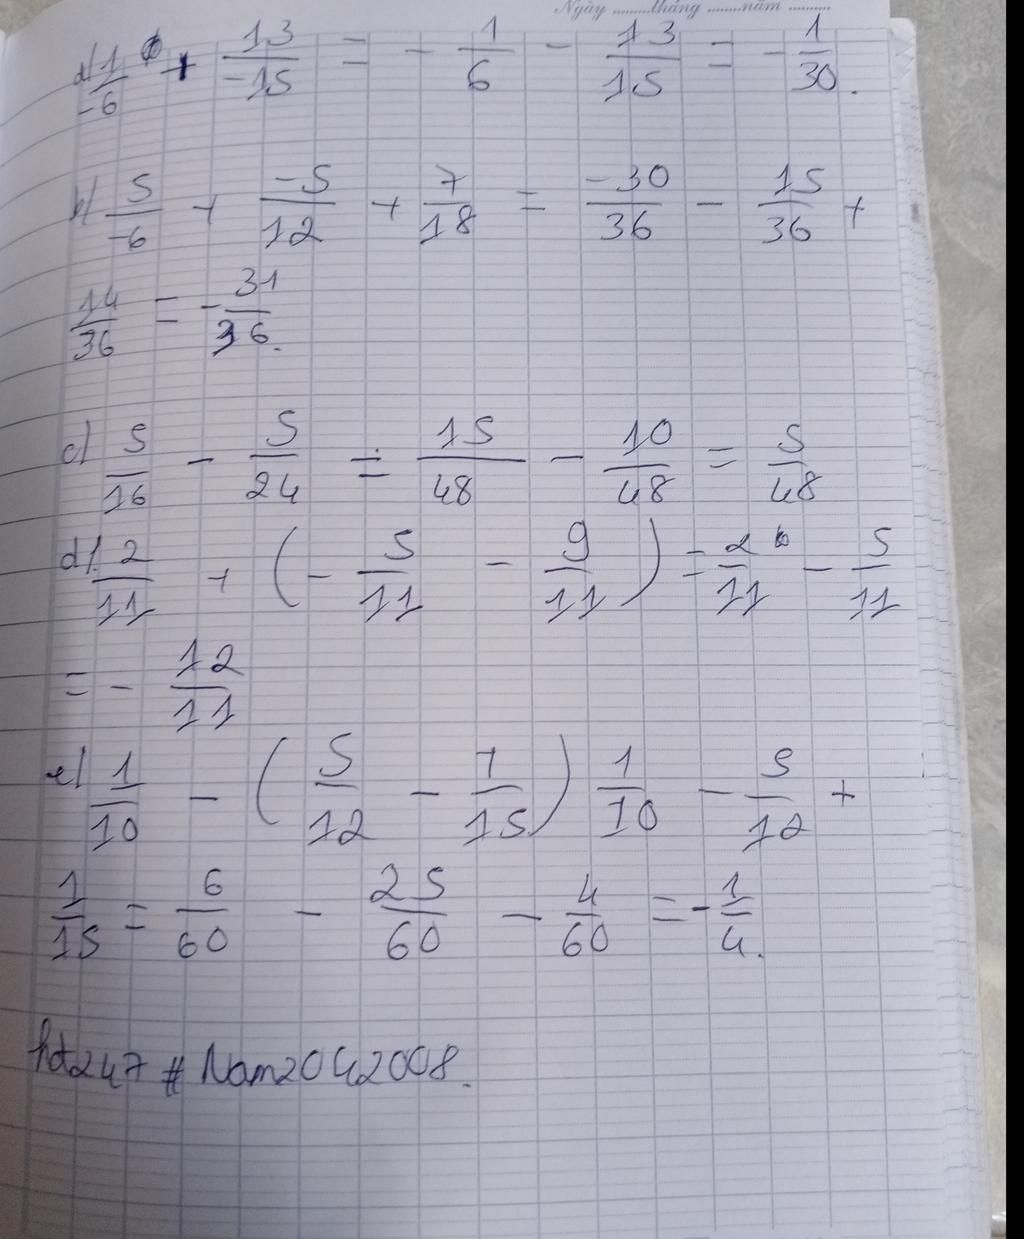 Ngày ........tháng ........năm ..........
a) 1/-6 + 13/-15 = - 1/6 - 13/15 = - 1/30.
b) 5/-6 + -5/12 + 7/18 = -30/36 - 15/36 +
14/36 = - 31/36.
c) 5/16 - 5/24 = 15/48 - 10/48 = 5/48
d) 2/11 + (- 5/11 - 9/11) = 2/11 - 5/11
= - 12/11
e) 1/10 - (5/12 - 1/15) 1/10 - 5/12 +
1/15 = 6/60 - 25/60 - 4/60 = - 1/4.
hd247 # Nam2042008.